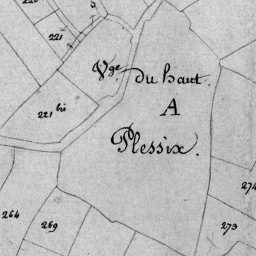 220
221
Vge du haut
A
221 bis
Plessix.
264
269
274
273